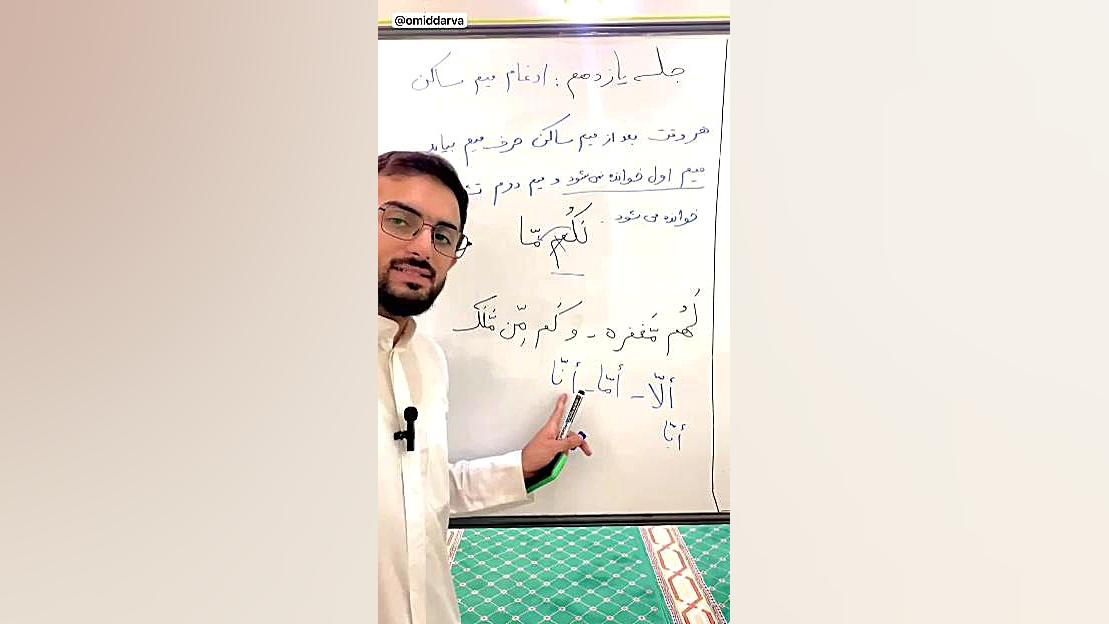 @omiddarva
جلسه یازدهم : ادغام میم ساکن
هر وقت بعد از میم ساکن حرف میم بیاید
میم اول خوانده نمی‌شود و میم دوم
خوانده می‌شود .
لَکُم مّا
لَهُم مَّغفره - و کَم مِّن مَّلَک
ألّا - أمّا - أنّا
أنّا